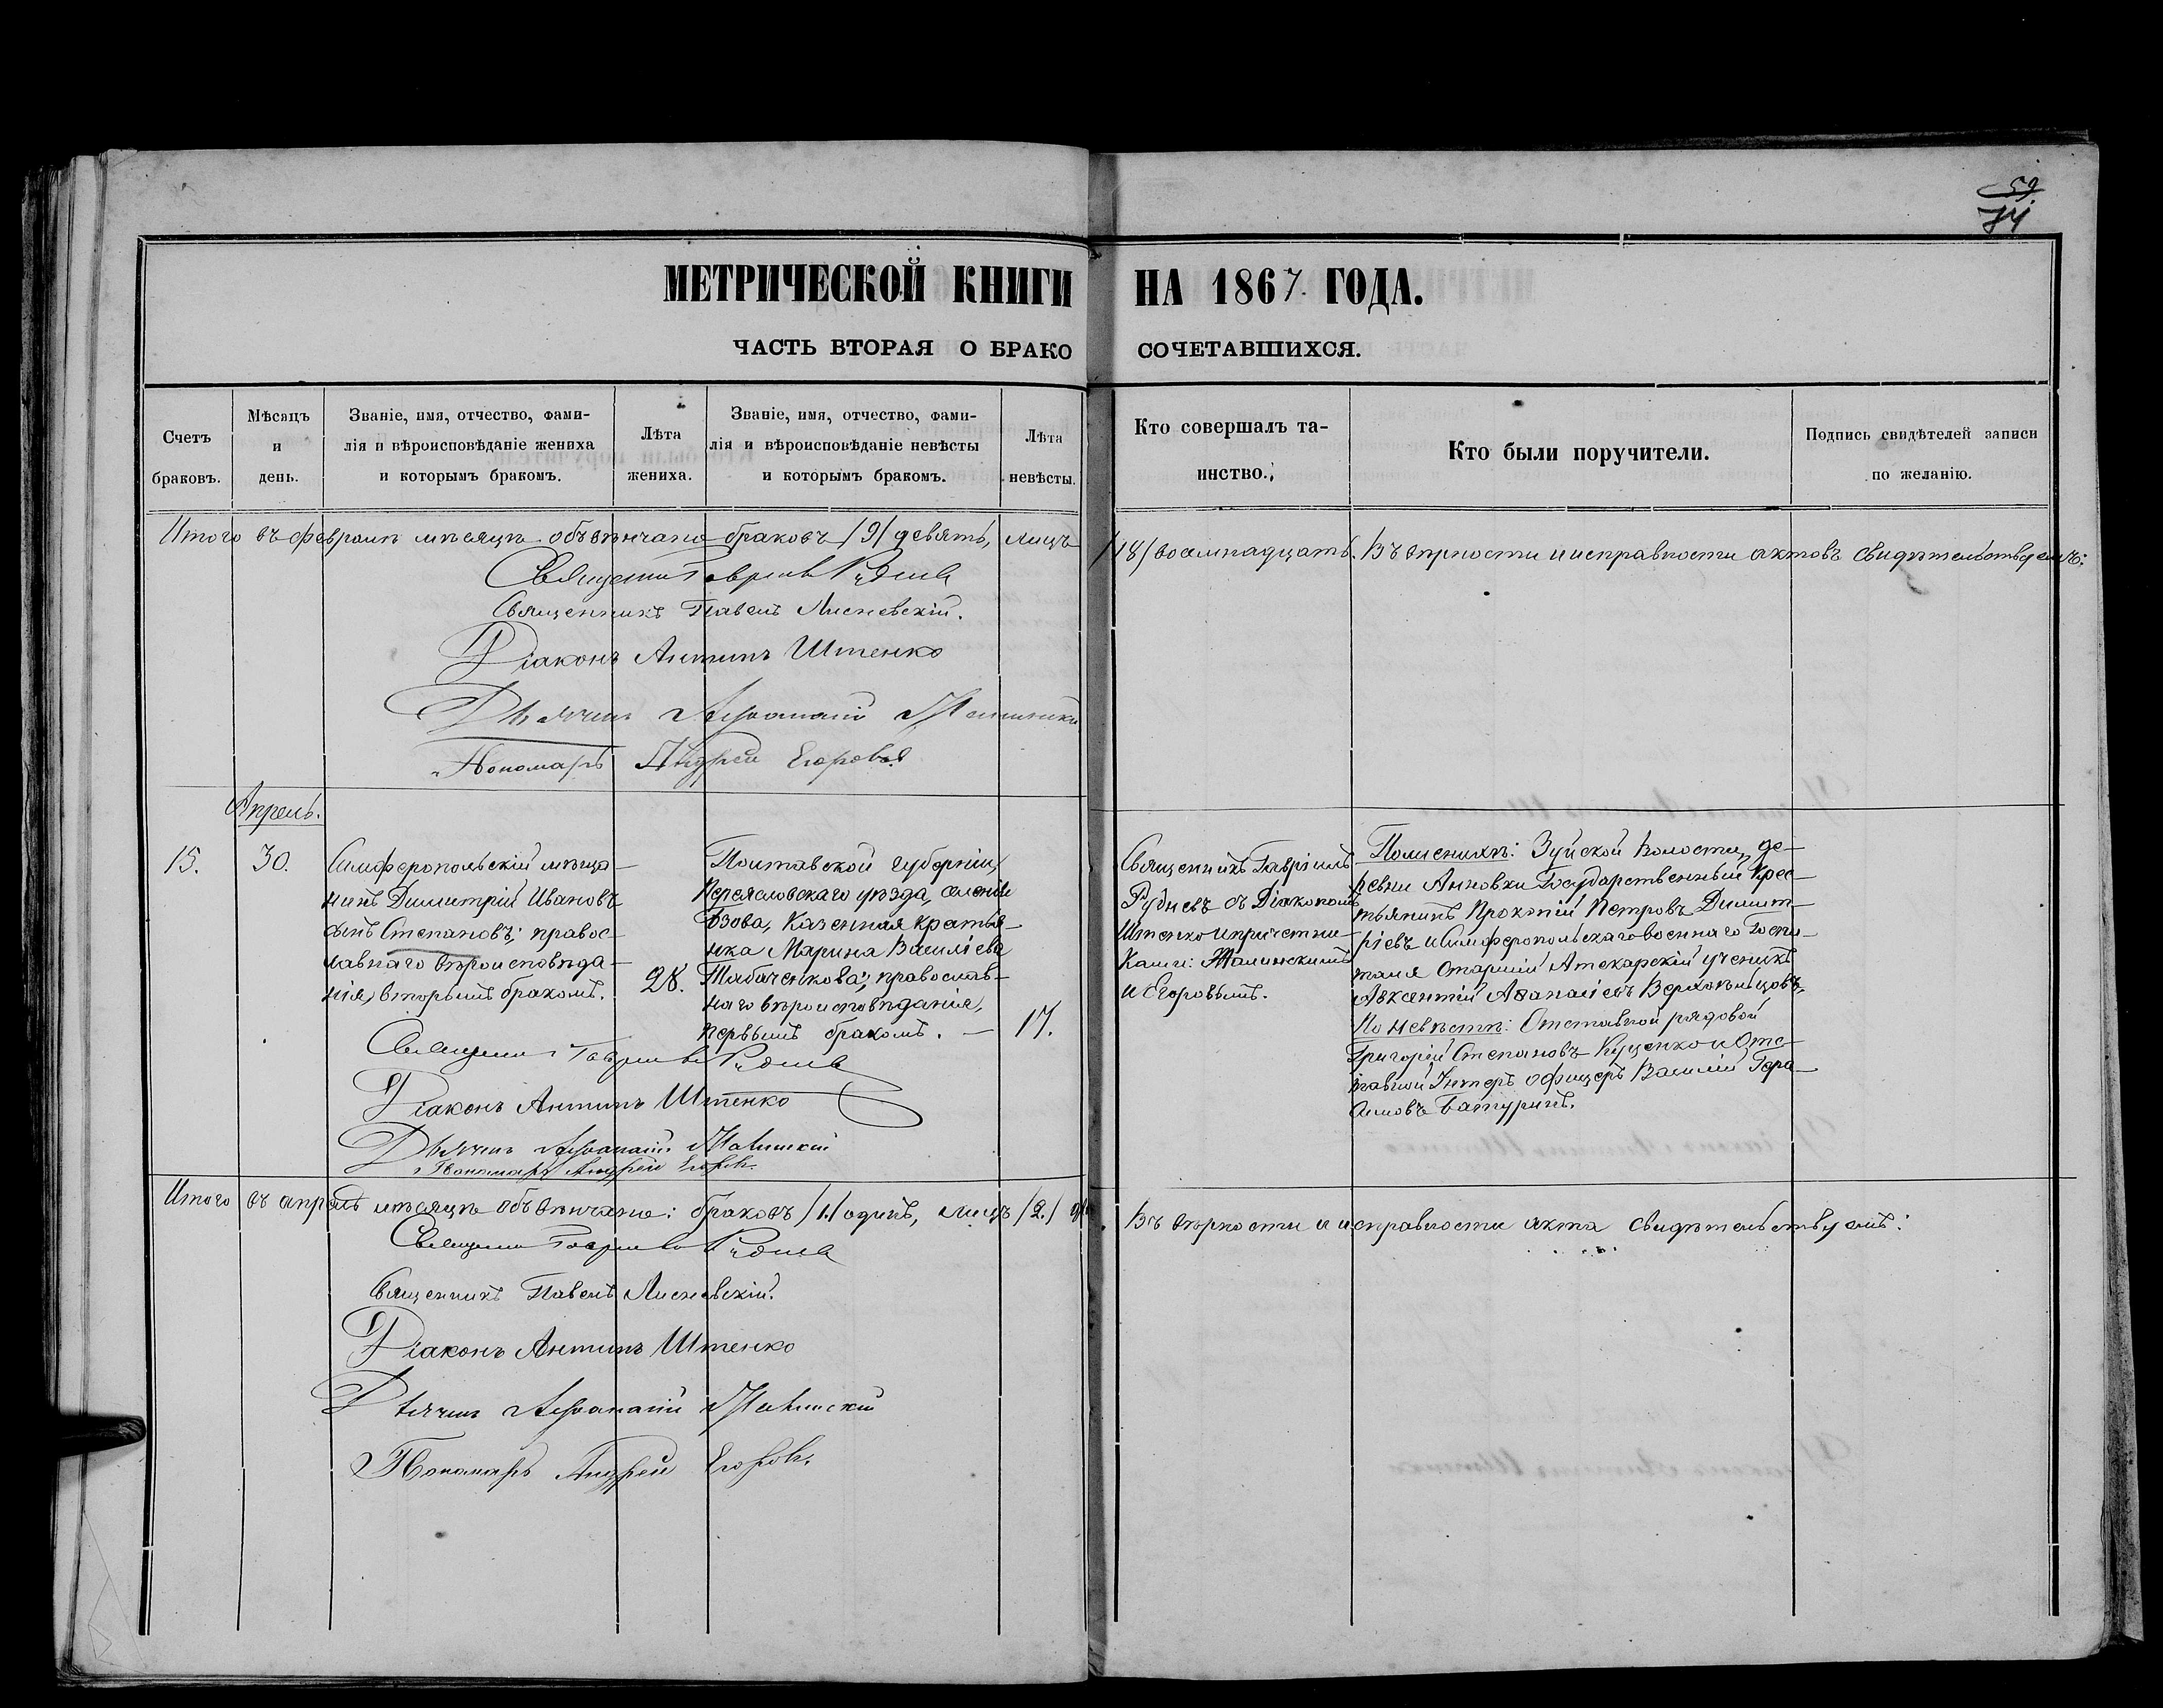 59
74
МЕТРИЧЕСКОЙ КНИГИ НА 1867 ГОДА.
ЧАСТЬ ВТОРАЯ О БРАКО СОЧЕТАВШИХСЯ.
Счетъ
браковъ.
Мѣсяцъ
и
день.
Званіе, имя, отчество, фами-
лія и вѣроисповѣданіе жениха
и которымъ бракомъ.
Лѣта
жениха.
Званіе, имя, отчество, фами-
лія и вѣроисповѣданіе невѣсты
и которымъ бракомъ.
Лѣта
невѣсты.
Кто совершалъ та-
инство.
Кто были поручители.
Подпись свидѣтелей записи
по желанію.
Итого въ февралѣ мѣсяцѣ обвѣнчано браковъ /9/ девять, лицъ /18/ восемнадцать. Въ вѣрности и исправности актовъ свидѣтельствуемъ:
Священникъ Гавріилъ Рудневъ
Священникъ Павелъ Лисневскій.
Діаконъ Антипъ Штенко
Дьячекъ Афанасій
Пономарь Андрей Егоровъ
Апрель.
15.
30.
Симферопольскій мѣща-
нинъ Димитрій Ивановъ
сынъ Степановъ; правос-
лавнаго вѣроисповѣда-
нія, вторымъ бракомъ.
28.
Полтавской губерніи,
Переясловскаго уѣзда, селенія
Бзова, Казенная крестья-
нка Марина Василіева
Табаченкова; православ-
наго вѣроисповѣданія,
первымъ бракомъ. —
17.
Священникъ Гавріилъ
Рудневъ съ Діакономъ
Штенко и причетни-
ками: Жалинскимъ
и Егоровымъ.
По женихѣ: Зуйской Волости, де-
ревни Анновки Государственный крес-
тьянинъ Прокопій Петровъ Димит-
ріевъ и Симферопольскаго военнаго Госпи-
таля Старшій Аптекарскій ученикъ
Авксентій Аѳанасіевъ
По невѣстѣ: Отставной рядовой
Григорій Степановъ Куценко и Отс-
тавной Унтеръ офицеръ Василій Гера-
симовъ Батуринъ.
Священникъ Гавріилъ Рудневъ
Діаконъ Антипъ Штенко
Дьячекъ Афанасій Жалинскій
Пономарь Андрей Егоровъ.
Итого въ апрелѣ мѣсяцѣ обвѣнчано: браковъ /1/ одинъ, лицъ /2./ Въ вѣрности и исправности акта свидѣтельствуемъ:
Священникъ Гавріилъ Рудневъ
Священникъ Павелъ Лисневскій.
Діаконъ Антипъ Штенко
Дьячекъ Афанасій Жалинскій
Пономарь Андрей Егоровъ.